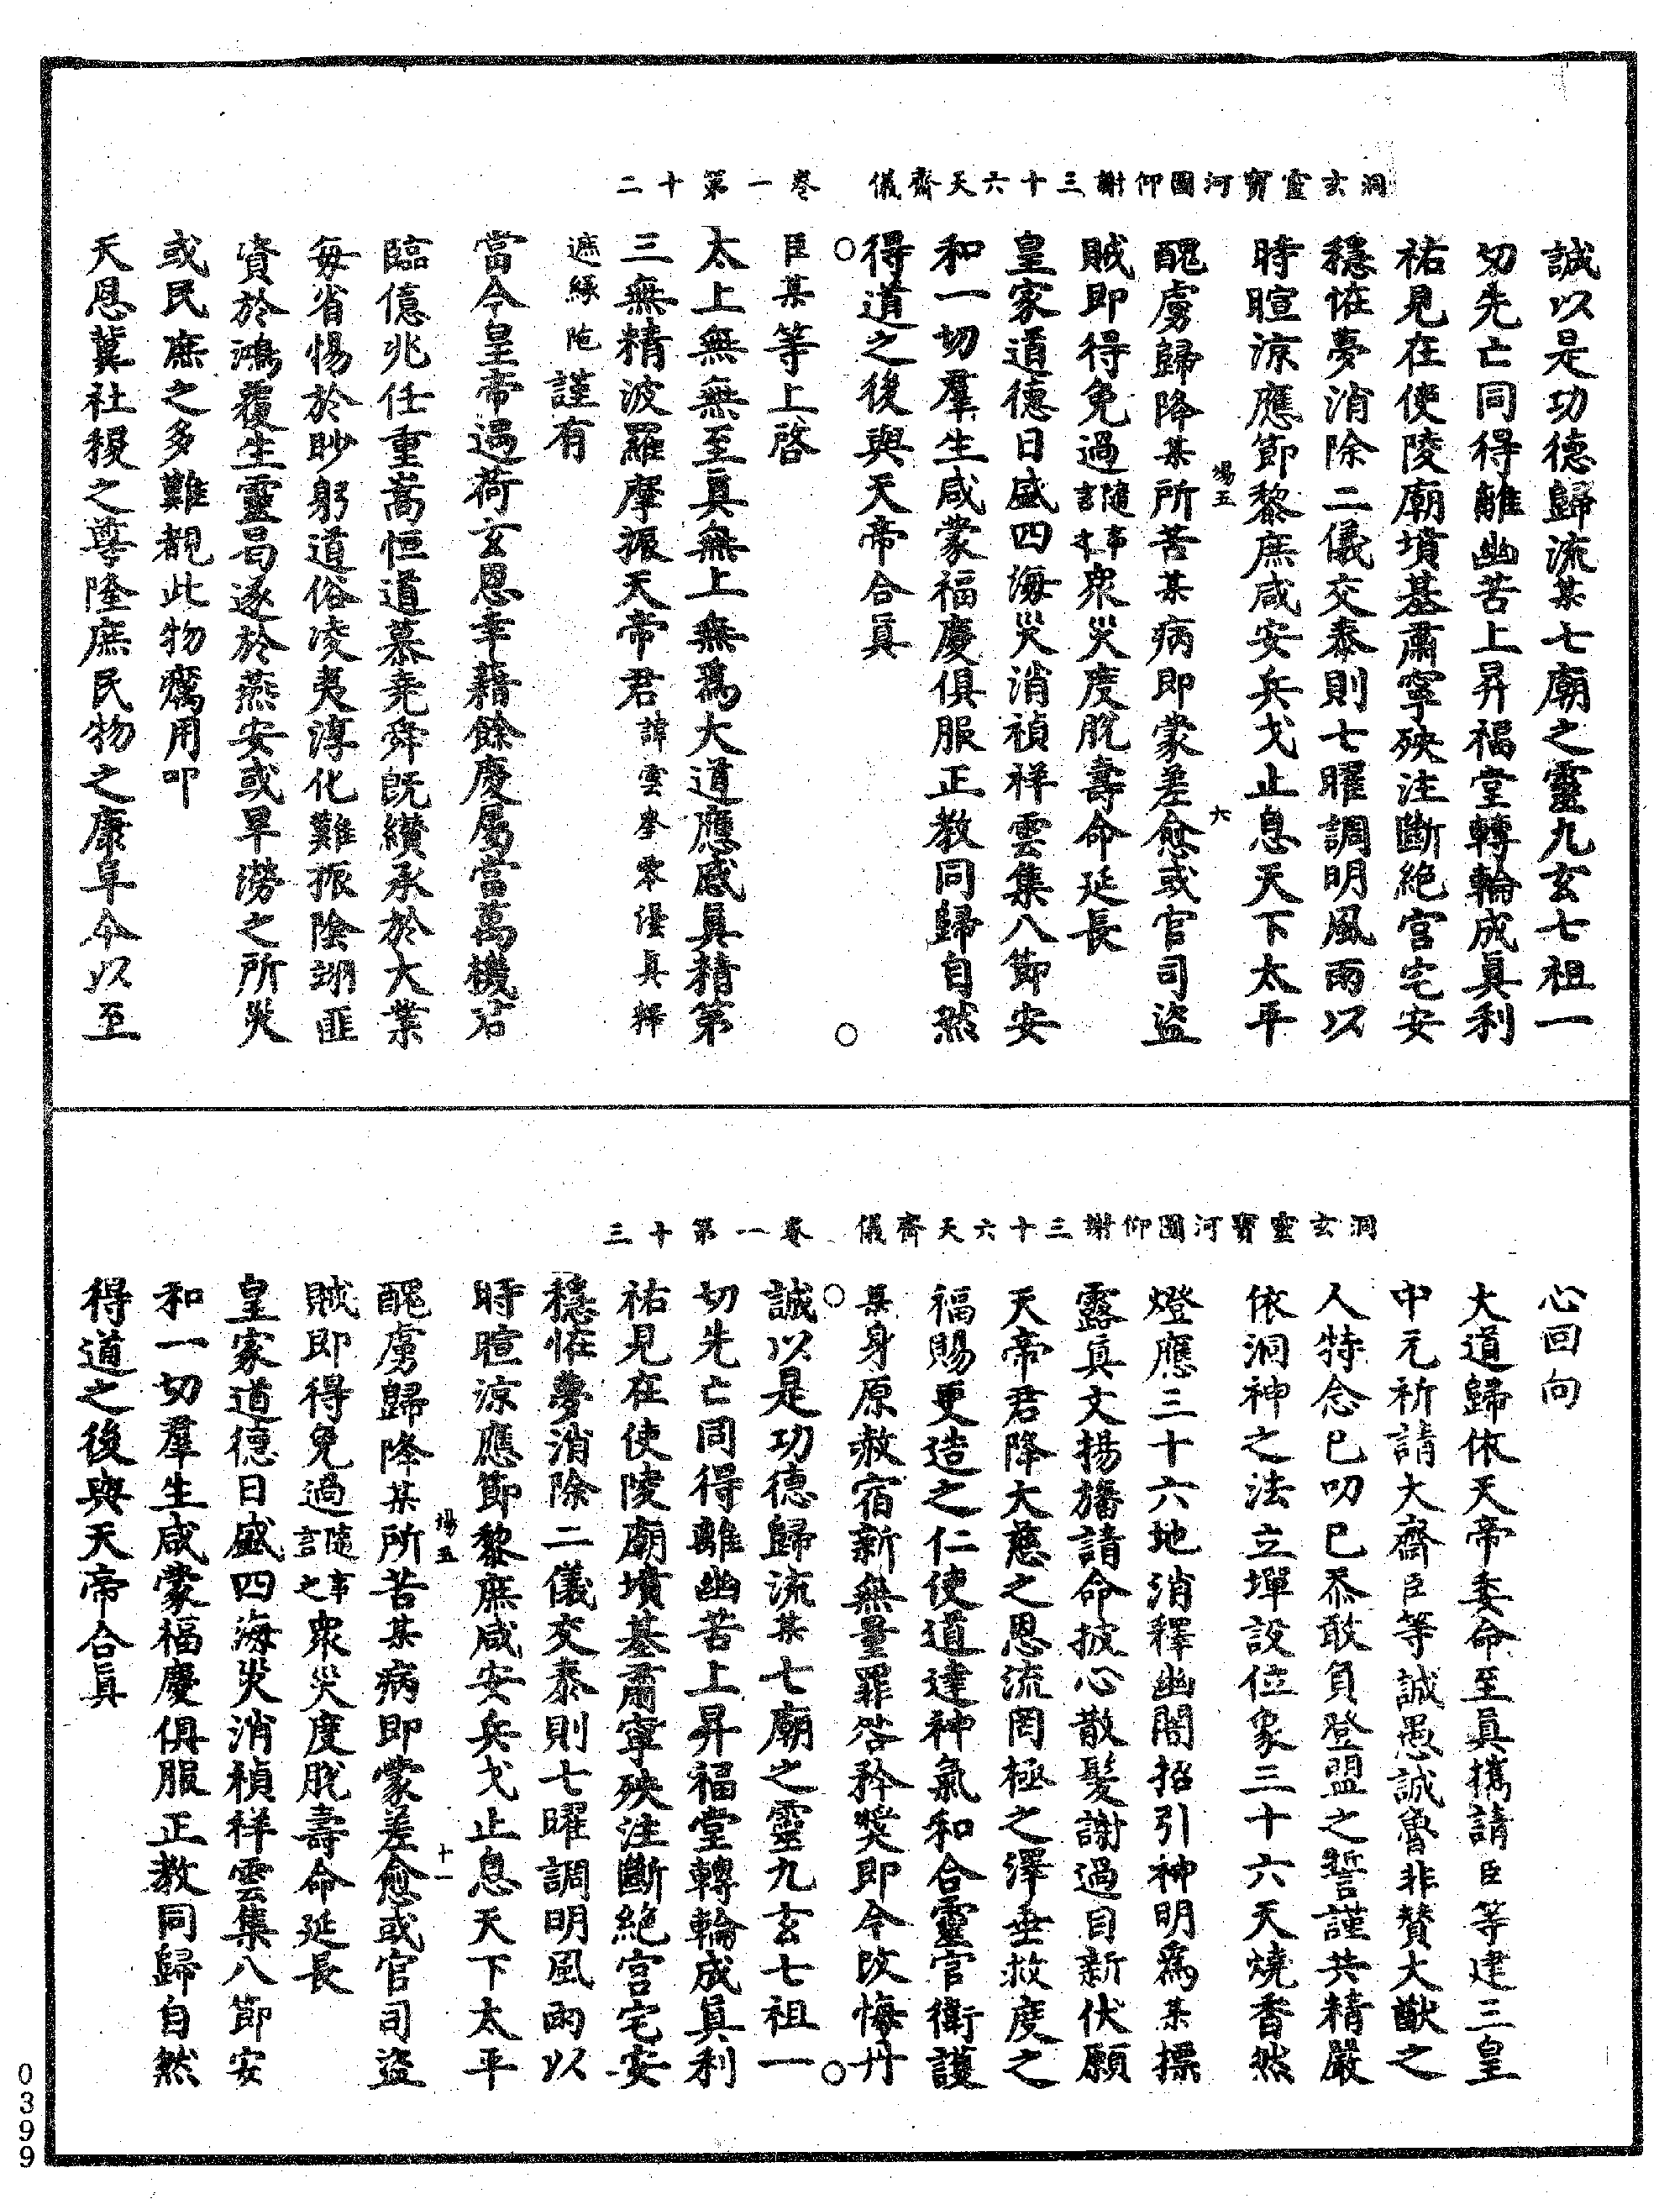 洞玄靈寶河圖仰謝三十六天齋儀　卷一第十二
誠以是功德歸流某七廟之靈九玄七祖一
切先亡同得離幽苦上昇福堂轉輪成眞利
祐見在使陵廟墳基肅寧殃注斷絶宫宅安
穩恠夢消除二儀交泰則七曜調明風雨以
時暄涼應節黎庶咸安兵戈止息天下太平
場五　六
醜虜歸降某所苦某病即蒙差愈或官司盜
賊即得免過隨事言之衆災度脫壽命延長
皇家道德日盛四海災消禎祥雲集八節安
和一切羣生咸蒙福慶俱服正教同歸自然
得道之後與天帝合眞
臣某等上啓
太上無無至眞無上無爲大道應感眞精第
三無精波羅摩振天帝君諱雲峯家優眞釋
遮緣陁謹有
當今皇帝過荷玄恩幸藉餘慶屬當萬機君
臨億兆任重嵩恒道慕堯舜旣纘承於大業
每省惕於眇躬道俗凌夷淳化難振陰翊匪
資於鴻覆生靈曷遂於燕安或旱澇之所災
或民庶之多難覩此物癘用叩
天恩冀社稷之尊隆庶民物之康阜今以至
洞玄靈寶河圖仰謝三十六天齋儀　卷一第十三
心回向
大道歸依天帝委命至眞擕請臣等建三皇
中元祈請大齋臣等誠愚誠魯非賛大猷之
人特念已叨已忝敢負登盟之誓謹共精嚴
依洞神之法立墠設位象三十六天燒香然
燈應三十六地消釋幽闇招引神明爲某摽
露眞文揚旛請命披心散髮謝過目新伏願
天帝君降大慈之恩流罔極之澤垂救度之
福賜更造之仁使道達神氣和合靈官衛護
某身原赦宿新無量罪咎矜奬即今改悔丹
誠以是功德歸流某七廟之靈九玄七祖一
切先亡同得離幽苦上昇福堂轉輪成眞利
祐見在使陵廟墳基肅寧殃注斷絶宫宅安
穩恠夢消除二儀交泰則七曜調明風雨以
時暄涼應節黎庶咸安兵戈止息天下太平
場五　十一
醜虜歸降某所苦某病即蒙差愈或官司盜
賊即得免過隨事言之衆災度脫壽命延長
皇家道德日盛四海災消禎祥雲集八節安
和一切羣生咸蒙福慶俱服正教同歸自然
得道之後與天帝合眞
0399